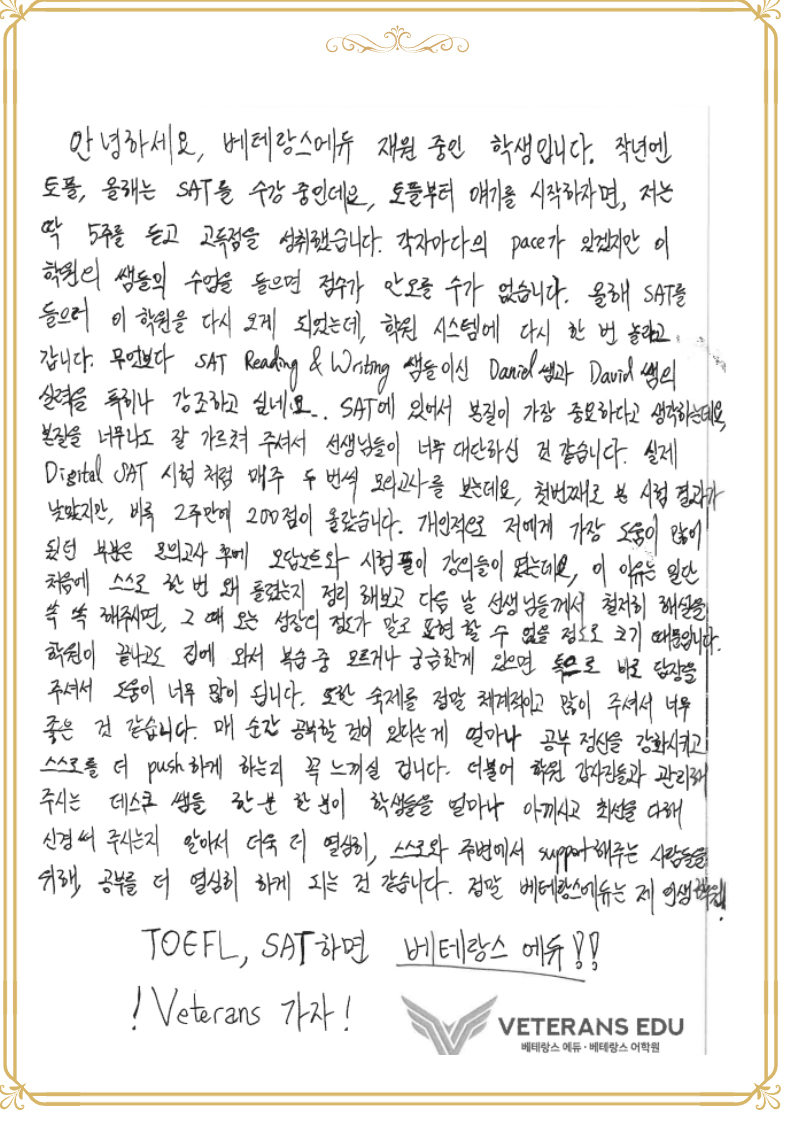 안녕하세요, 베테랑스에듀 재원 중인 학생입니다. 작년엔
토플, 올해는 SAT를 수강 중인데요, 토플부터 얘기를 시작하자면, 저는
딱 5주를 듣고 고득점을 성취했습니다. 각자마다의 pace가 있겠지만 이
학원의 쌤들의 수업을 들으면 점수가 안오를 수가 없습니다. 올해 SAT를
들으러 이 학원을 다시 오게 되었는데, 학원 시스템에 다시 한 번 놀라고
갑니다. 무엇보다 SAT Reading & Writing 쌤들이신 Daniel쌤과 David 쌤의
실력을 특히나 강조하고 싶네요.. SAT에 있어서 본질이 가장 중요하다고 생각하는데요,
본질을 너무나도 잘 가르쳐 주셔서 선생님들이 너무 대단하신 것 같습니다. 실제
Digital SAT 시험처럼 매주 두 번씩 모의고사를 보는데요, 첫번째로 본 시험 결과가
낮았지만, 비록 2주만에 200점이 올랐습니다. 개인적으로 저에게 가장 도움이 많이
됬던 부분은 모의고사 후에 오답노트와 시험 풀이 강의들이 였는데요, 이 이유는 일단
처음에 스스로 한 번 왜 틀렸는지 정리 해보고 다음 날 선생님들께서 철저히 해설을
쏙 쏙 해주시면, 그 때 오는 성장의 정도가 말로 표현 할 수 없을 정도로 크기 때문입니다.
학원이 끝나고도 집에 와서 복습 중 모르거나 궁금한게 있으면 톡으로 바로 답장을
주셔서 도움이 너무 많이 됩니다. 또한 숙제를 정말 체계적이고 많이 주셔서 너무
좋은 것 같습니다. 매 순간 공부할 것이 있다는게 얼마나 공부 정신을 강화시키고
스스로를 더 push하게 하는지 꼭 느끼실 겁니다. 더불어 학원 감자진들과 관리해
주시는 데스크 쌤들 한 분 한 분이 학생들을 얼마나 아끼시고 최선을 다해
신경 써 주시는지 알아서 더욱 더 열심히, 스스로와 주변에서 support해주는 사람들을
위해, 공부를 더 열심히 하게 되는 것 같습니다. 정말 베테랑스에듀는 제 인생 학원!
TOEFL, SAT하면 베테랑스 에듀!!
! Veterans 가자!
VETERANS EDU
베테랑스 에듀 · 베테랑스 어학원